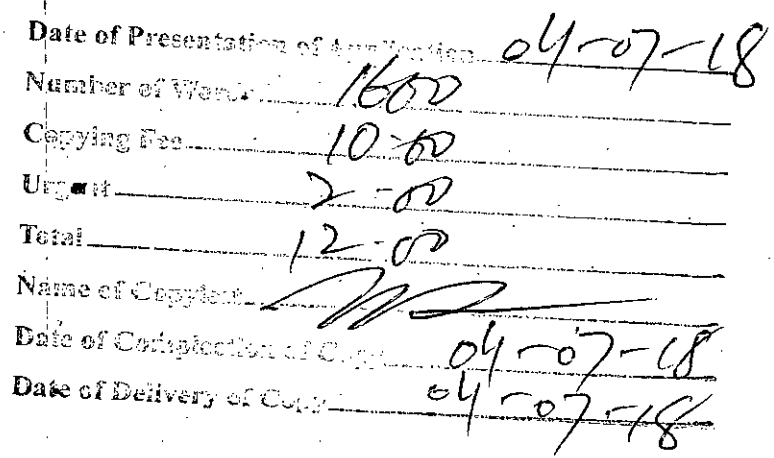 Date of Presentation of Application 04-07-18
Number of Words 1600
Copying Fee 10-00
Urgent 2-00
Total 12-00
Name of Copyiest
Date of Complection of Copy 04-07-18
Date of Delivery of Copy 04-07-18